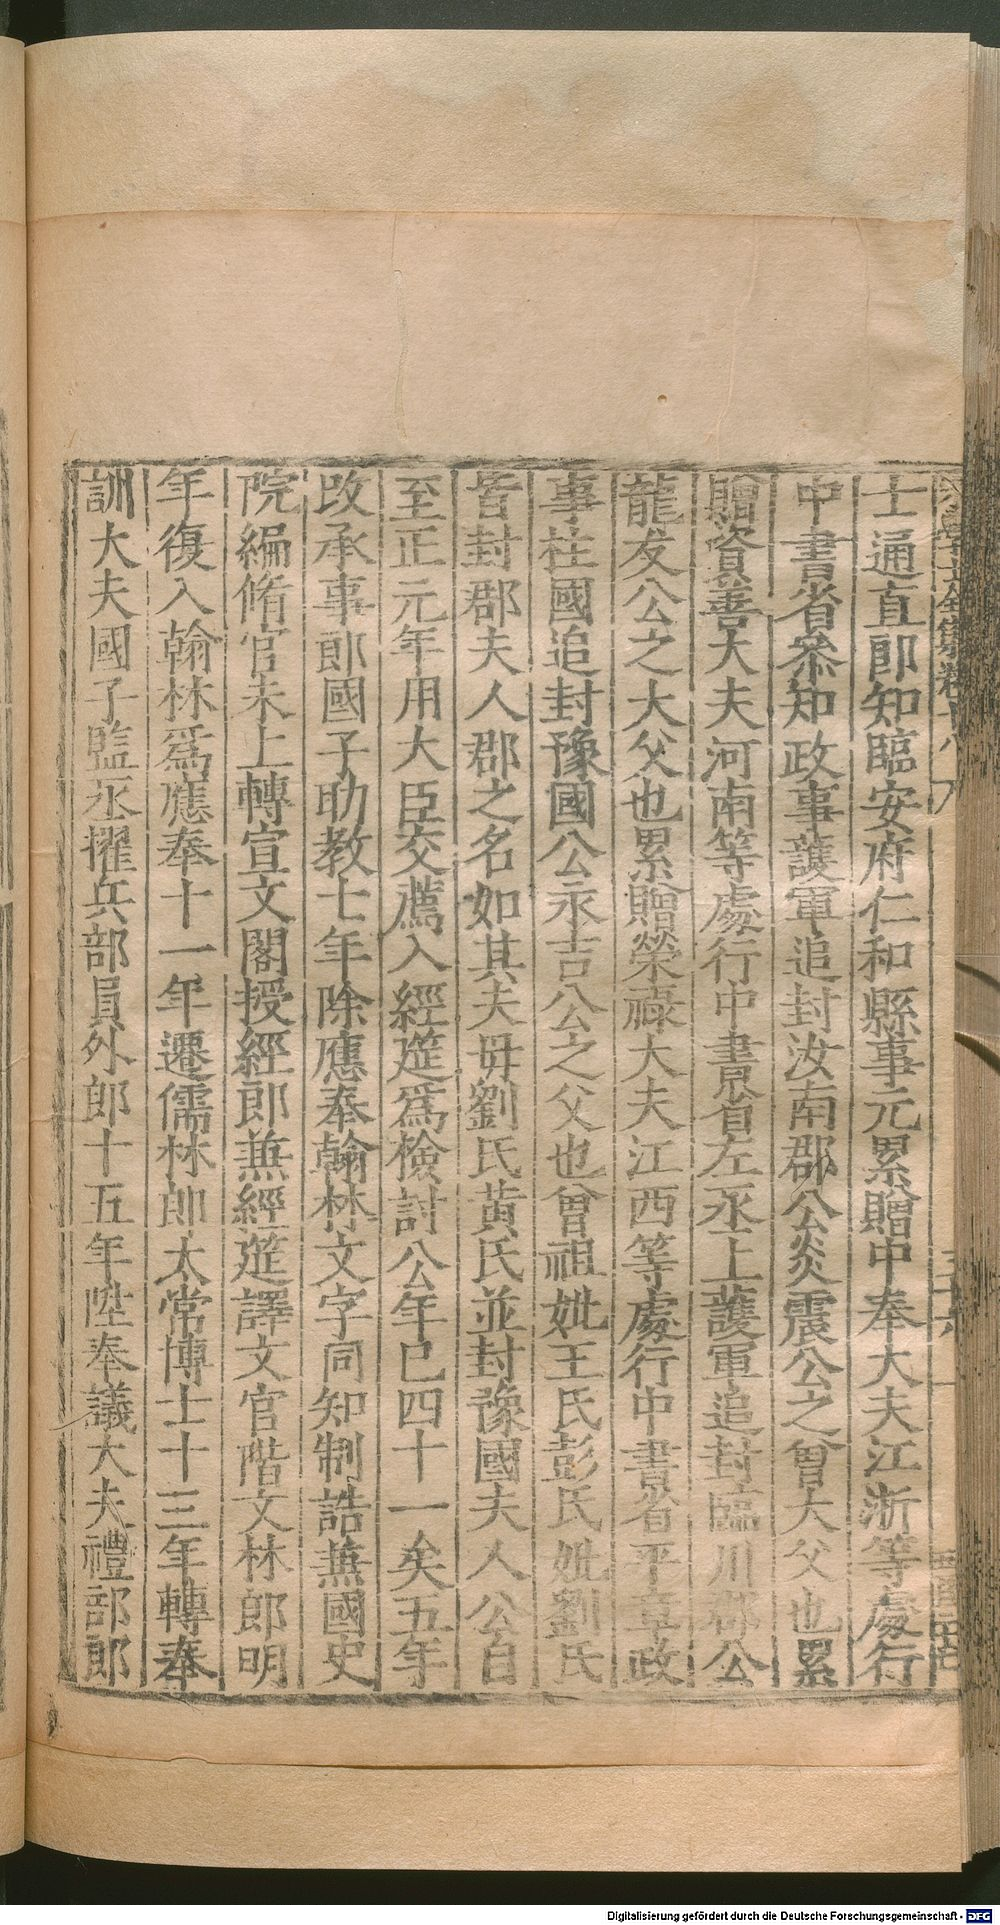 士通直郎知臨安府仁和縣事元累贈中奉大夫江浙等處行
中書省叅知政事護軍追封汝南郡公炎震公之曾大父也累
贈資善大夫河南等處行中書省左丞上護軍追封臨川郡公
龍友公之大父也累贈榮祿大夫江西等處行中書省平章政
事柱國追封豫國公永吉公之父也曾祖妣王氏彭氏妣劉氏
皆封郡夫人郡之名如其夫毋劉氏黃氏並封豫國夫人公自
至正元年用大臣交薦入經筵爲檢討公年已四十一矣五年
改承事郎國子助教七年除應奉翰林文字同知制誥蕪國史
院編脩官未上轉宣文閣授經郎蕪經筵譯文官階文林郎明
年復入翰林爲應奉十一年遷儒林郎太常博士十三年轉奉
訓大夫國子監丞擢兵部員外郎十五年陞奉議大夫禮部郎
Digitalisierung gefördert durch die Deutsche Forschungsgemeinschaft - DFG